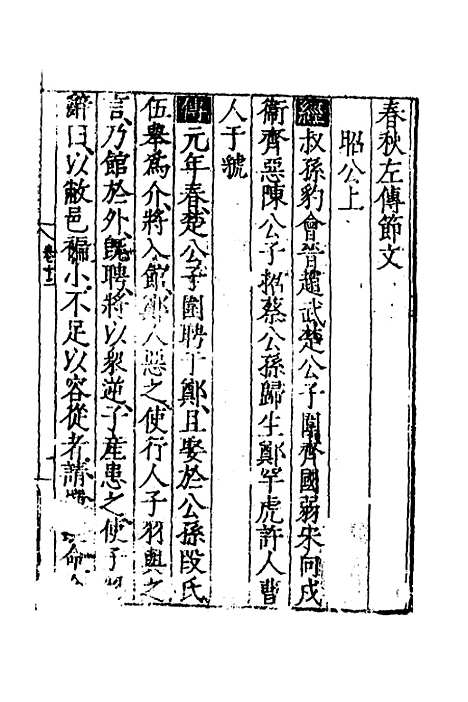 春秋左傳節文
昭公上
經叔孫豹會晉趙武楚公子圍齊國弱宋向戌
衛齊惡陳公子招蔡公孫歸生鄭罕虎許人曹
人于虢
傳元年春楚公子圍聘于鄭且娶於公孫段氏
伍舉爲介將入館鄭人惡之使行人子羽與之
言乃館於外旣聘將以衆逆子產患之使子
辭曰以敝邑褊小不足以容從者請命